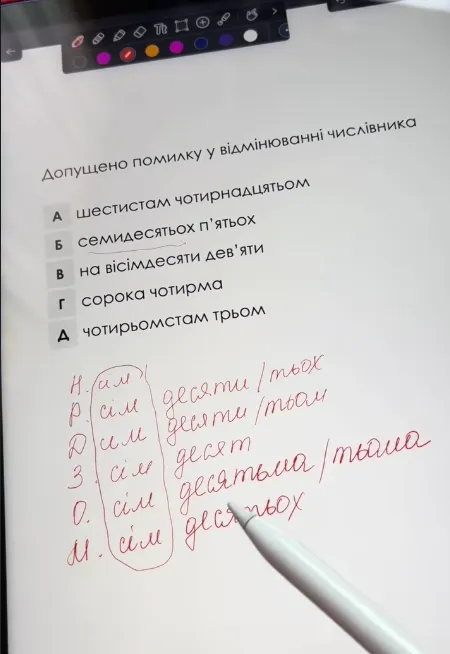 Допущено помилку у відмінюванні числівника
А шестистам чотирнадцятьом
Б семидесятьох п'ятьох
В на вісімдесяти дев'яти
Г сорока чотирма
Д чотирьомстам трьом
Н. сім
Р. сім десяти / тьох
Д сім десяти / тьом
З. сім десят
О. сім десятьма / тьома
М. сім десятьох